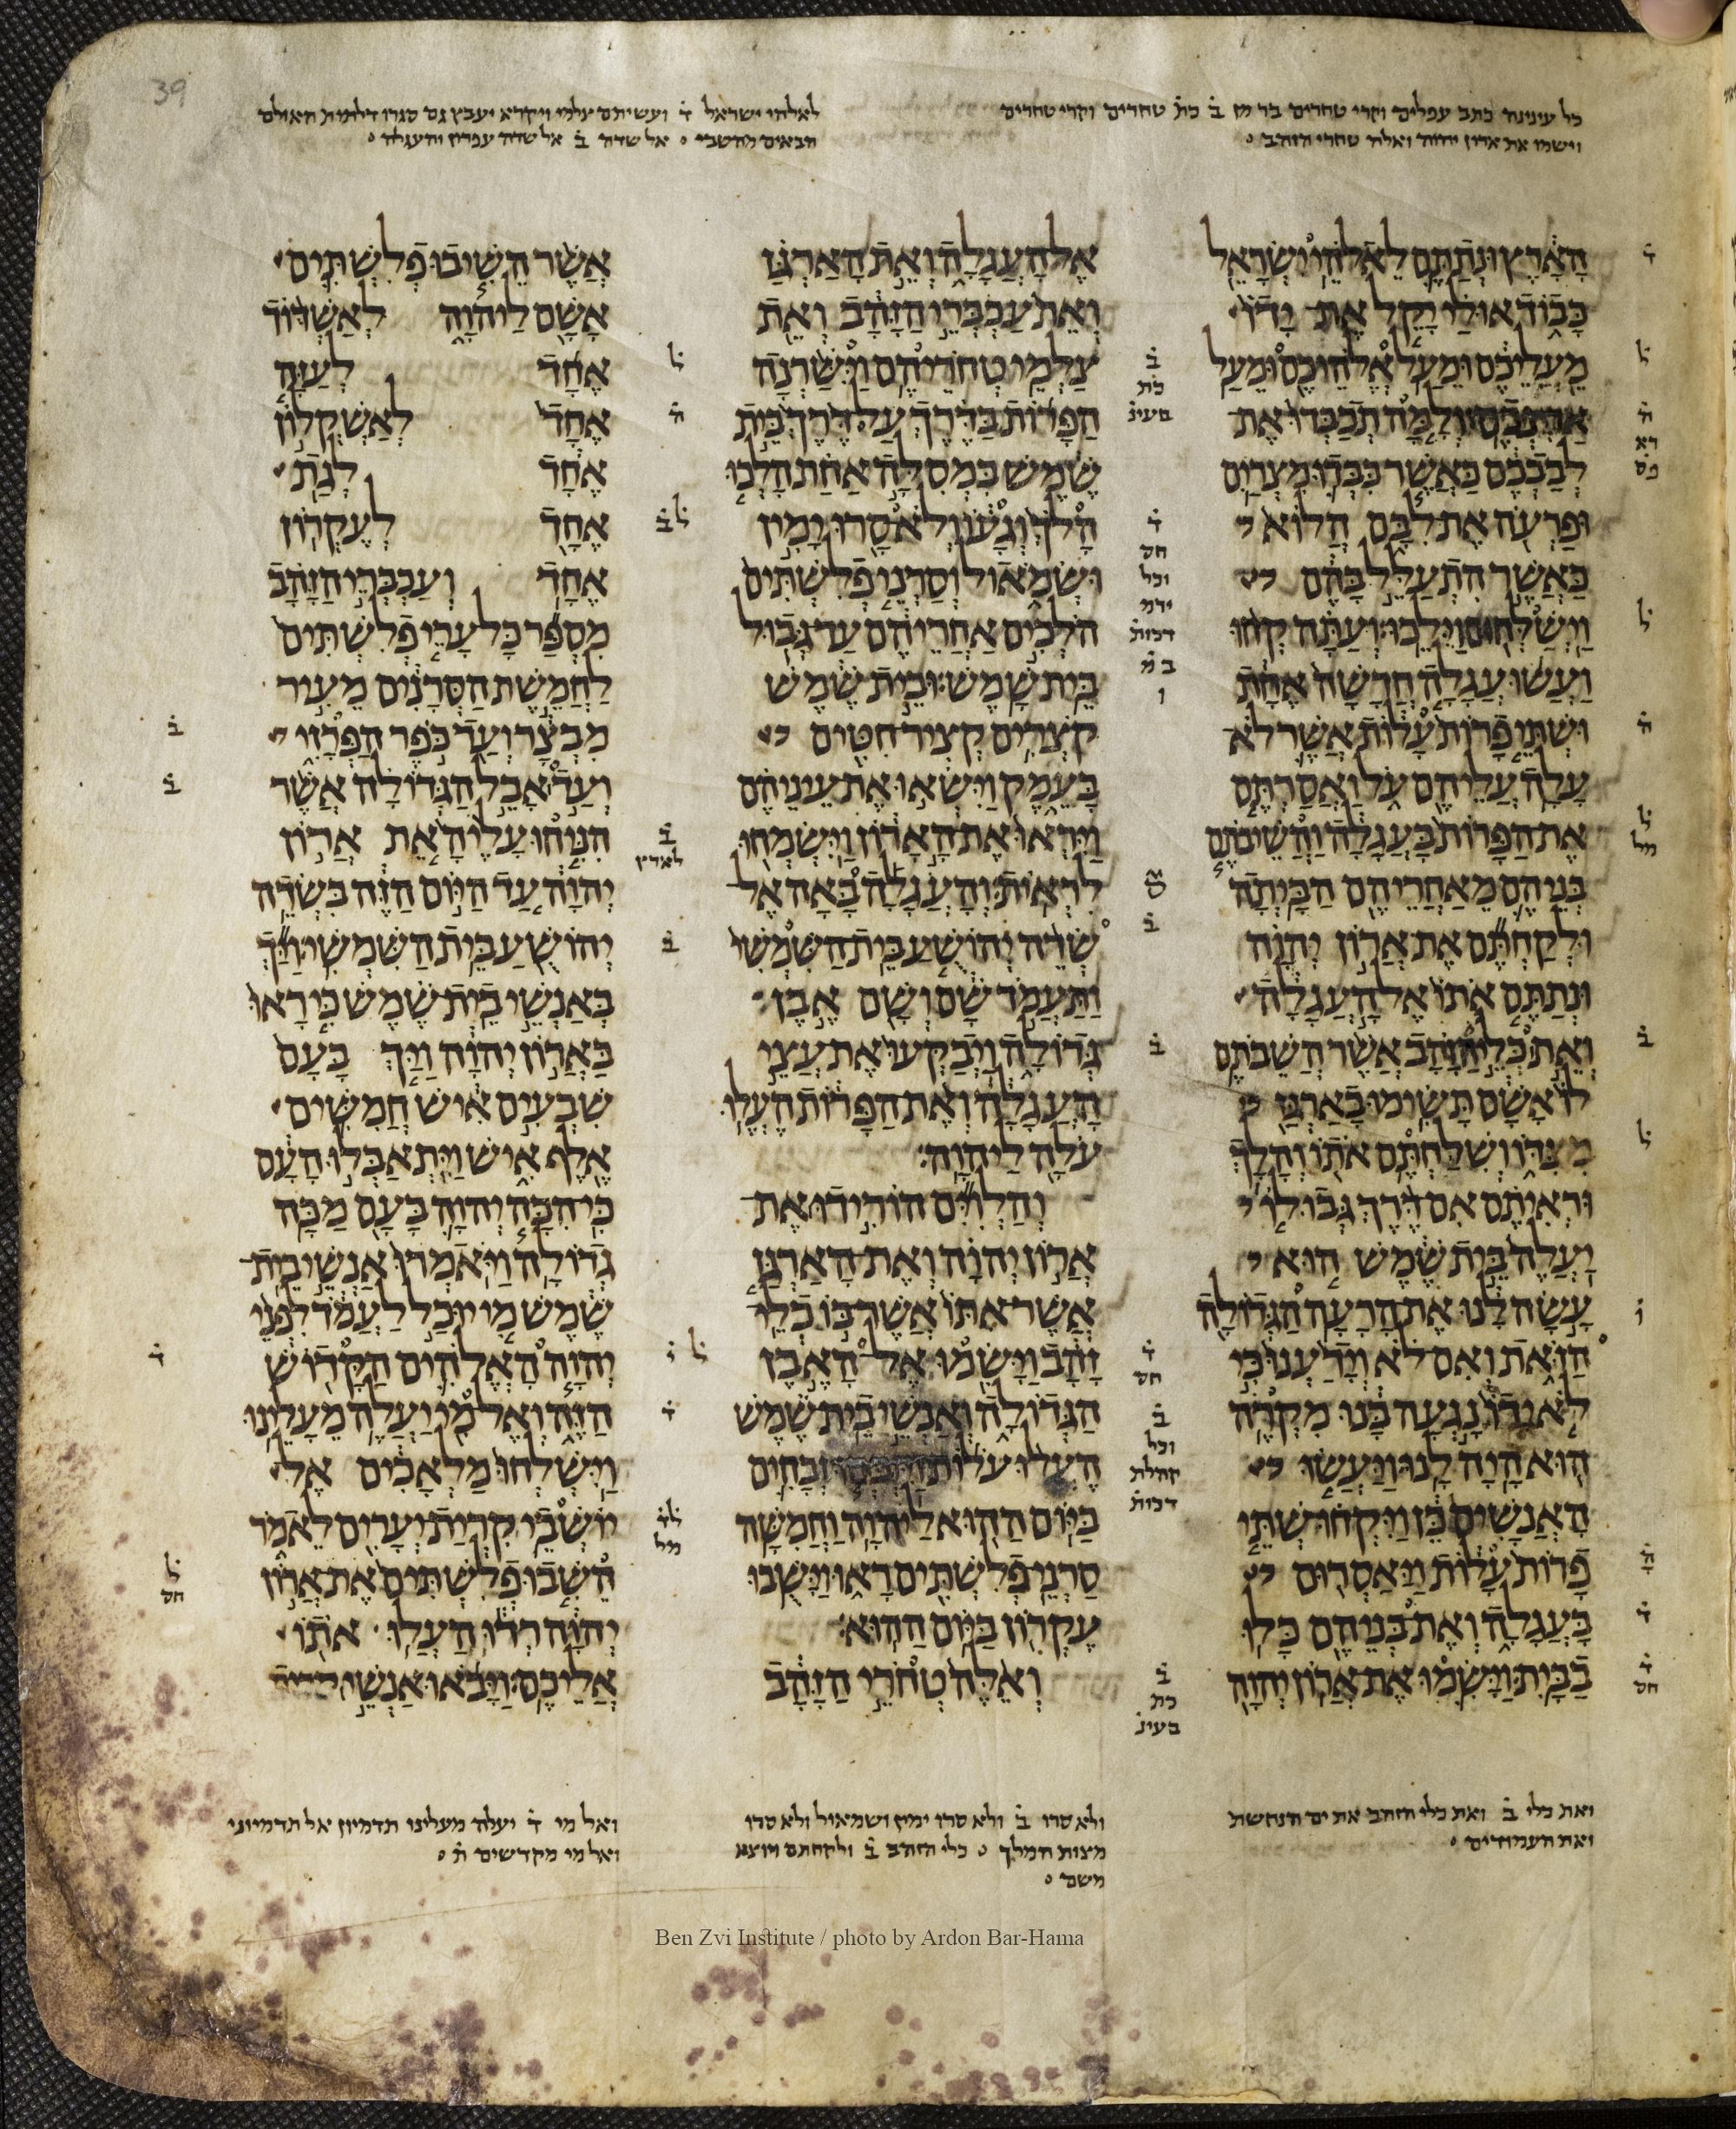 כל עינינה כתב עפלים וקרי טחרים בר מן ב כת טחרים וקרי טחרים
וישמו את ארון יהוה ואלה טחרי הזהב ○
לאלהי ישראל ד ועשיתם צלמי ויקרא יעבץ גם סגרו דלתות האולם
הבאים מהשבי ○ אל שדה ב אל שדה עפרון והעגלה ○
הארץ ונתתם לאלהי ישראל
כבוד אולי יקל את ידו
מעליכם ומעל אלהיכם ומעל
ארצכם ולמה תכבדו את
לבבכם כאשר כבדו מצרים
ופרעה את לבם הלוא
כאשר התעלל בהם
וישלחום וילכו ועתה קחו
ועשו עגלה חדשה אחת
ושתי פרות עלות אשר לא
עלה עליהם על ואסרתם
את הפרות בעגלה והשיבתם
בניהם מאחריהם הביתה
ולקחתם את ארון יהוה
ונתתם אתו אל העגלה
ואת כלי הזהב אשר השבתם
לו אשם תשימו בארגז
מצדו ושלחתם אתו והלך
וראיתם אם דרך גבולו
יעלה בית שמש הוא
עשה לנו את הרעה הגדולה
הזאת ואם לא וידענו כי
לא ידו נגעה בנו מקרה
הוא היה לנו ויעשו
האנשים כן ויקחו שתי
פרות עלות ויאסרום
בעגלה ואת בניהם כלו
בבית וישמו את ארון יהוה
אל העגלה ואת הארגז
ואת עכברי הזהב ואת
צלמי טחריהם וישרנה
הפרות בדרך על דרך בית
שמש במסלה אחת הלכו
הלך וגעו ולא סרו ימין
ושמאול וסרני פלשתים
הלכים אחריהם עד גבול
בית שמש ובית שמש
קצרים קציר חטים
בעמק וישאו את עיניהם
ויראו את הארון וישמחו
לראות והעגלה באה אל
שדה יהושע בית השמשי
ותעמד שם ושם אבן
גדולה ויבקעו את עצי
העגלה ואת הפרות העלו
עלה ליהוה
והלוים הורידו את
ארון יהוה ואת הארגז
אשר אתו אשר בו כלי
זהב וישמו אל האבן
הגדולה ואנשי בית שמש
העלו עלות ויזבחו זבחים
ביום ההוא ליהוה וחמשה
סרני פלשתים ראו וישבו
עקרון ביום ההוא
ואלה טחרי הזהב
אשר השיבו פלשתים
אשם ליהוה לאשדוד
אחד לעזה
אחד לאשקלון
אחד לגת
אחד לעקרון
אחד ועכברי הזהב
מספר כל ערי פלשתים
לחמשת הסרנים מעיר
מבצר ועד כפר הפרזי
ועד אבל הגדולה אשר
הניחו עליה את ארון
יהוה עד היום הזה בשדה
יהושע בית השמשי ויך
באנשי בית שמש כי ראו
בארון יהוה ויך בעם
שבעים איש חמשים
אלף איש ויתאבלו העם
כי הכה יהוה בעם מכה
גדולה ויאמרו אנשי בית
שמש מי יוכל לעמד לפני
יהוה האלהים הקדוש
הזה ואל מי יעלה מעלינו
וישלחו מלאכים אל
יושבי קרית יערים לאמר
השבו פלשתים את ארון
יהוה רדו העלו אתו
אליכם ויבאו אנשי קרית
ואת כלי ב ואת כלי הזהב את ים הנחשת
ואת העמודים ○
ולא סרו ב ולא סרו ימין ושמאול ולא סרו
מצות המלך ○ כלי הזהב ב ולקחתם ויוצא
משם ○
ואל מי ד יעלה מעלינו תדמיון אל תדמיוני
ואל מי מקדשים ת ○
Ben Zvi Institute / photo by Ardon Bar-Hama
39